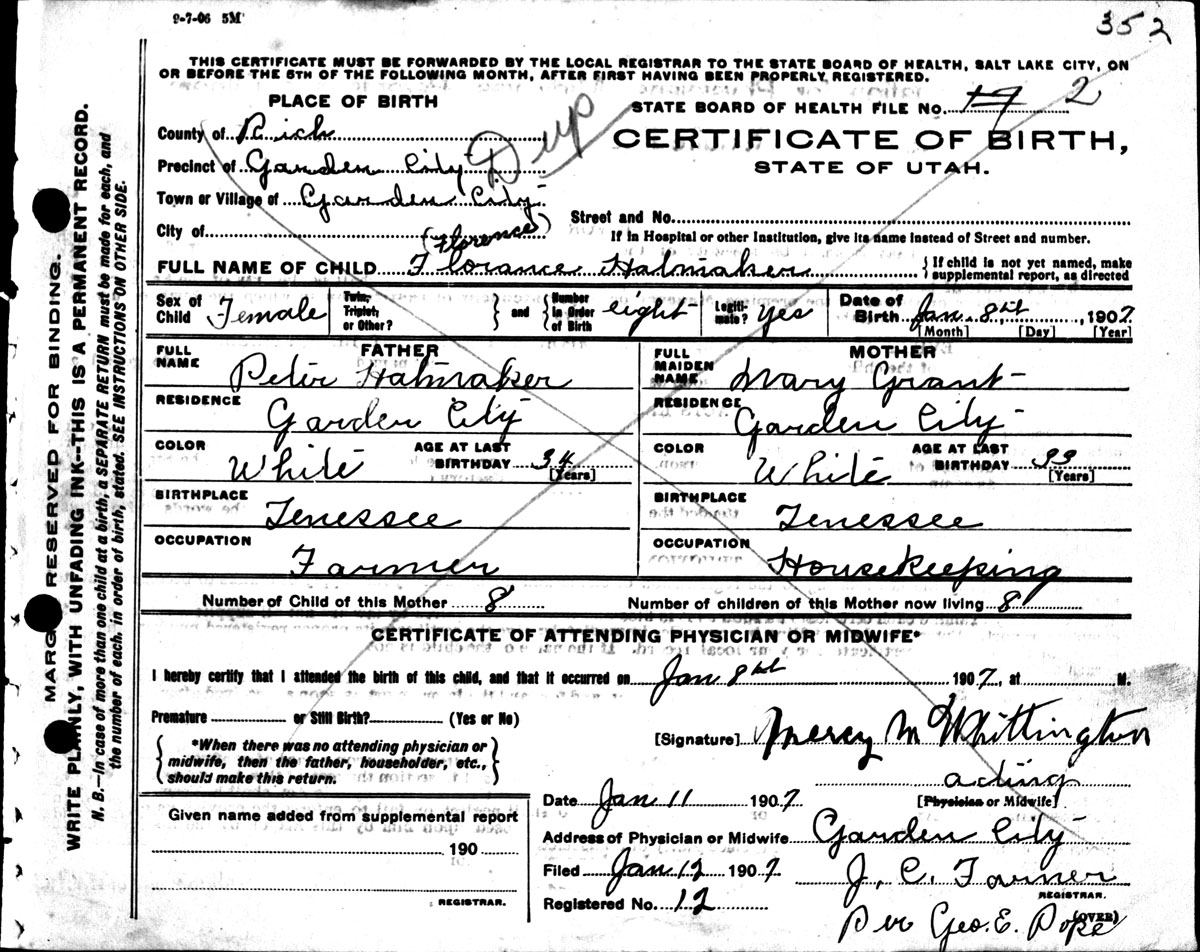 9-7-06 5M
352
THIS CERTIFICATE MUST BE FORWARDED BY THE LOCAL REGISTRAR TO THE STATE BOARD OF HEALTH, SALT LAKE CITY, ON
OR BEFORE THE 5TH OF THE FOLLOWING MONTH, AFTER FIRST HAVING BEEN PROPERLY REGISTERED.
PLACE OF BIRTH
STATE BOARD OF HEALTH FILE No. 19 2
County of Rich
Dup
CERTIFICATE OF BIRTH,
STATE OF UTAH.
Precinct of Garden City
Town or Village of Garden City
Street and No.
City of
If in Hospital or other Institution, give its name instead of Street and number.
(Florence)
FULL NAME OF CHILD Florance Halmaker { If child is not yet named, make
supplemental report, as directed
Sex of Child Female
Twin, Triplet, or Other? } and { Number in Order of Birth eight
Legitimate? Yes
Date of Birth Jan 8th, 1907
[Month] [Day] [Year]
FATHER
FULL NAME Peter Halmaker
RESIDENCE Garden City
COLOR White AGE AT LAST BIRTHDAY 34 [Years]
BIRTHPLACE Tenessee
OCCUPATION Farmer
MOTHER
FULL MAIDEN NAME Mary Grant
RESIDENCE Garden City
COLOR White AGE AT LAST BIRTHDAY 33 [Years]
BIRTHPLACE Tenessee
OCCUPATION Housekeeping
Number of Child of this Mother 8 Number of children of this Mother now living 8
CERTIFICATE OF ATTENDING PHYSICIAN OR MIDWIFE*
I hereby certify that I attended the birth of this child, and that it occurred on Jan 8th 1907, at M.
Premature or Still Birth? (Yes or No)
{ *When there was no attending physician or
midwife, then the father, householder, etc.,
should make this return. }
[Signature] Mercy M Whittington
acting
[Physician or Midwife]
Given name added from supplemental report
190
REGISTRAR.
Date Jan 11 1907
Address of Physician or Midwife Garden City
Filed Jan 12 1907 J. C. Farner
REGISTRAR.
Registered No. 12
Per Geo. E. Pope
(OVER)
MARGIN RESERVED FOR BINDING.
WRITE PLAINLY, WITH UNFADING INK--THIS IS A PERMANENT RECORD.
N. B.—In case of more than one child at a birth, a SEPARATE RETURN must be made for each, and
the number of each, in order of birth, stated. SEE INSTRUCTIONS ON OTHER SIDE.